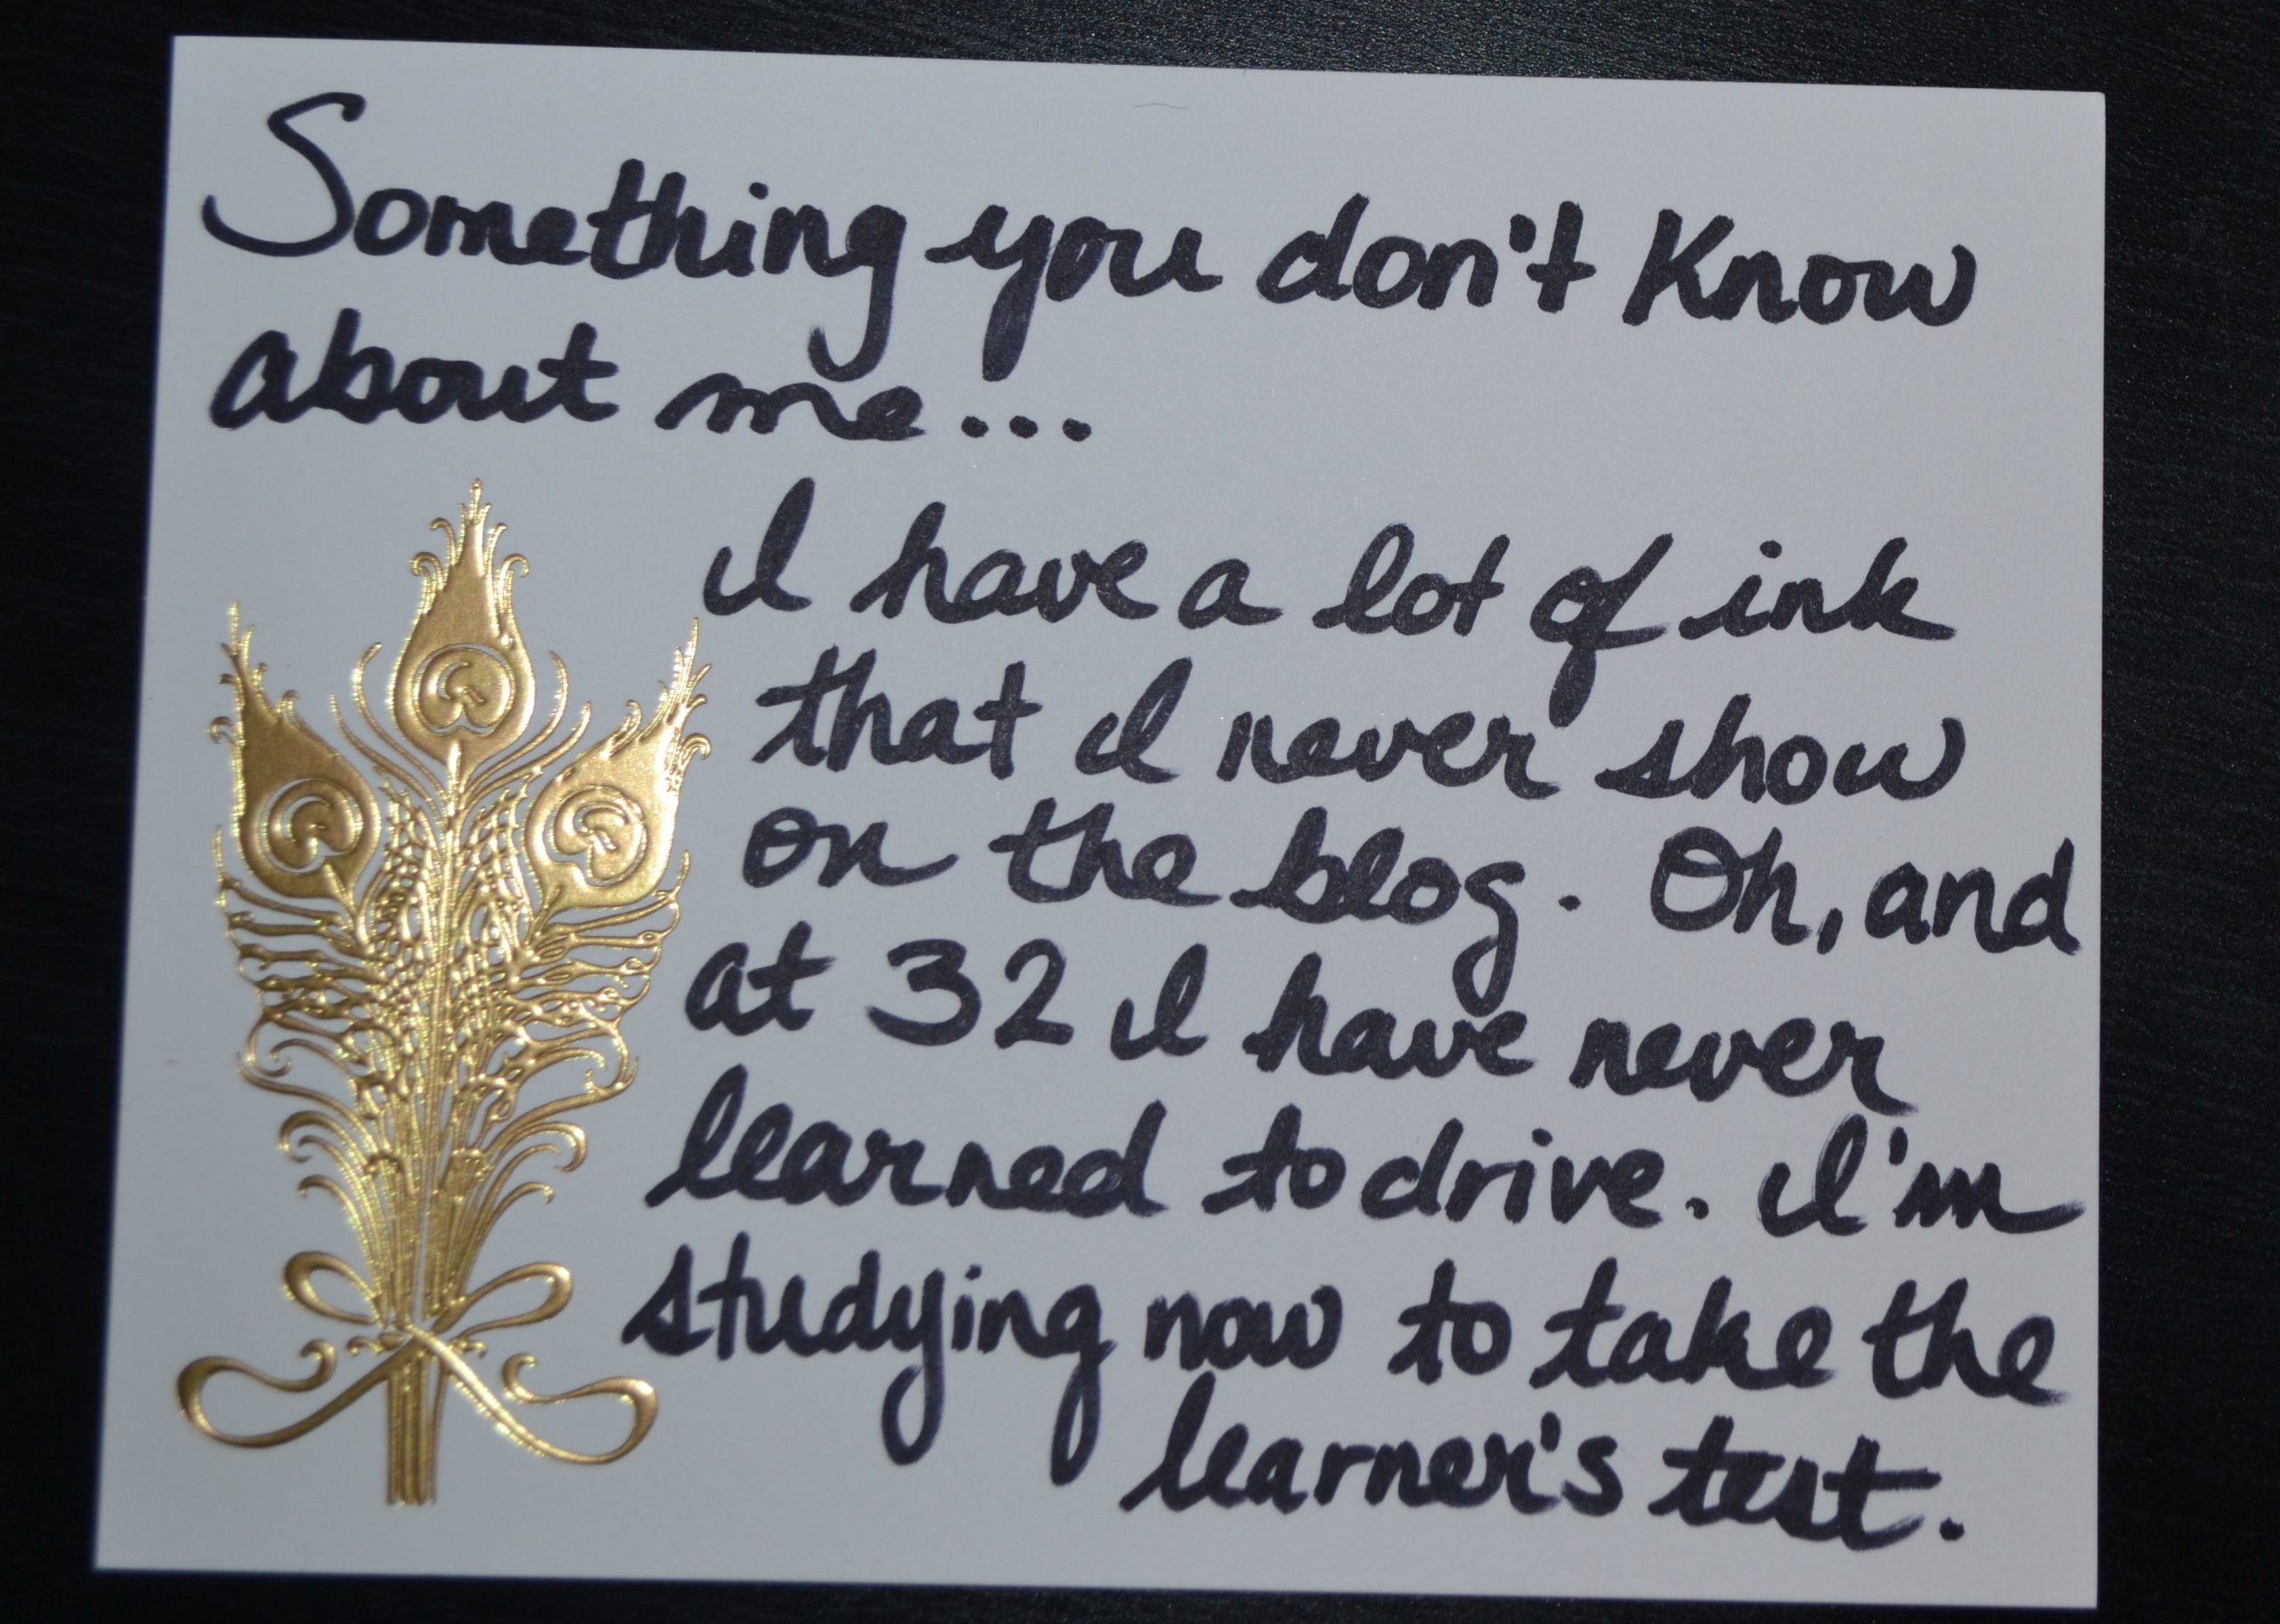 Something you don't know
about me...
I have a lot of ink
that I never show
on the blog. Oh, and
at 32 I have never
learned to drive. I'm
studying now to take the
learner's test.